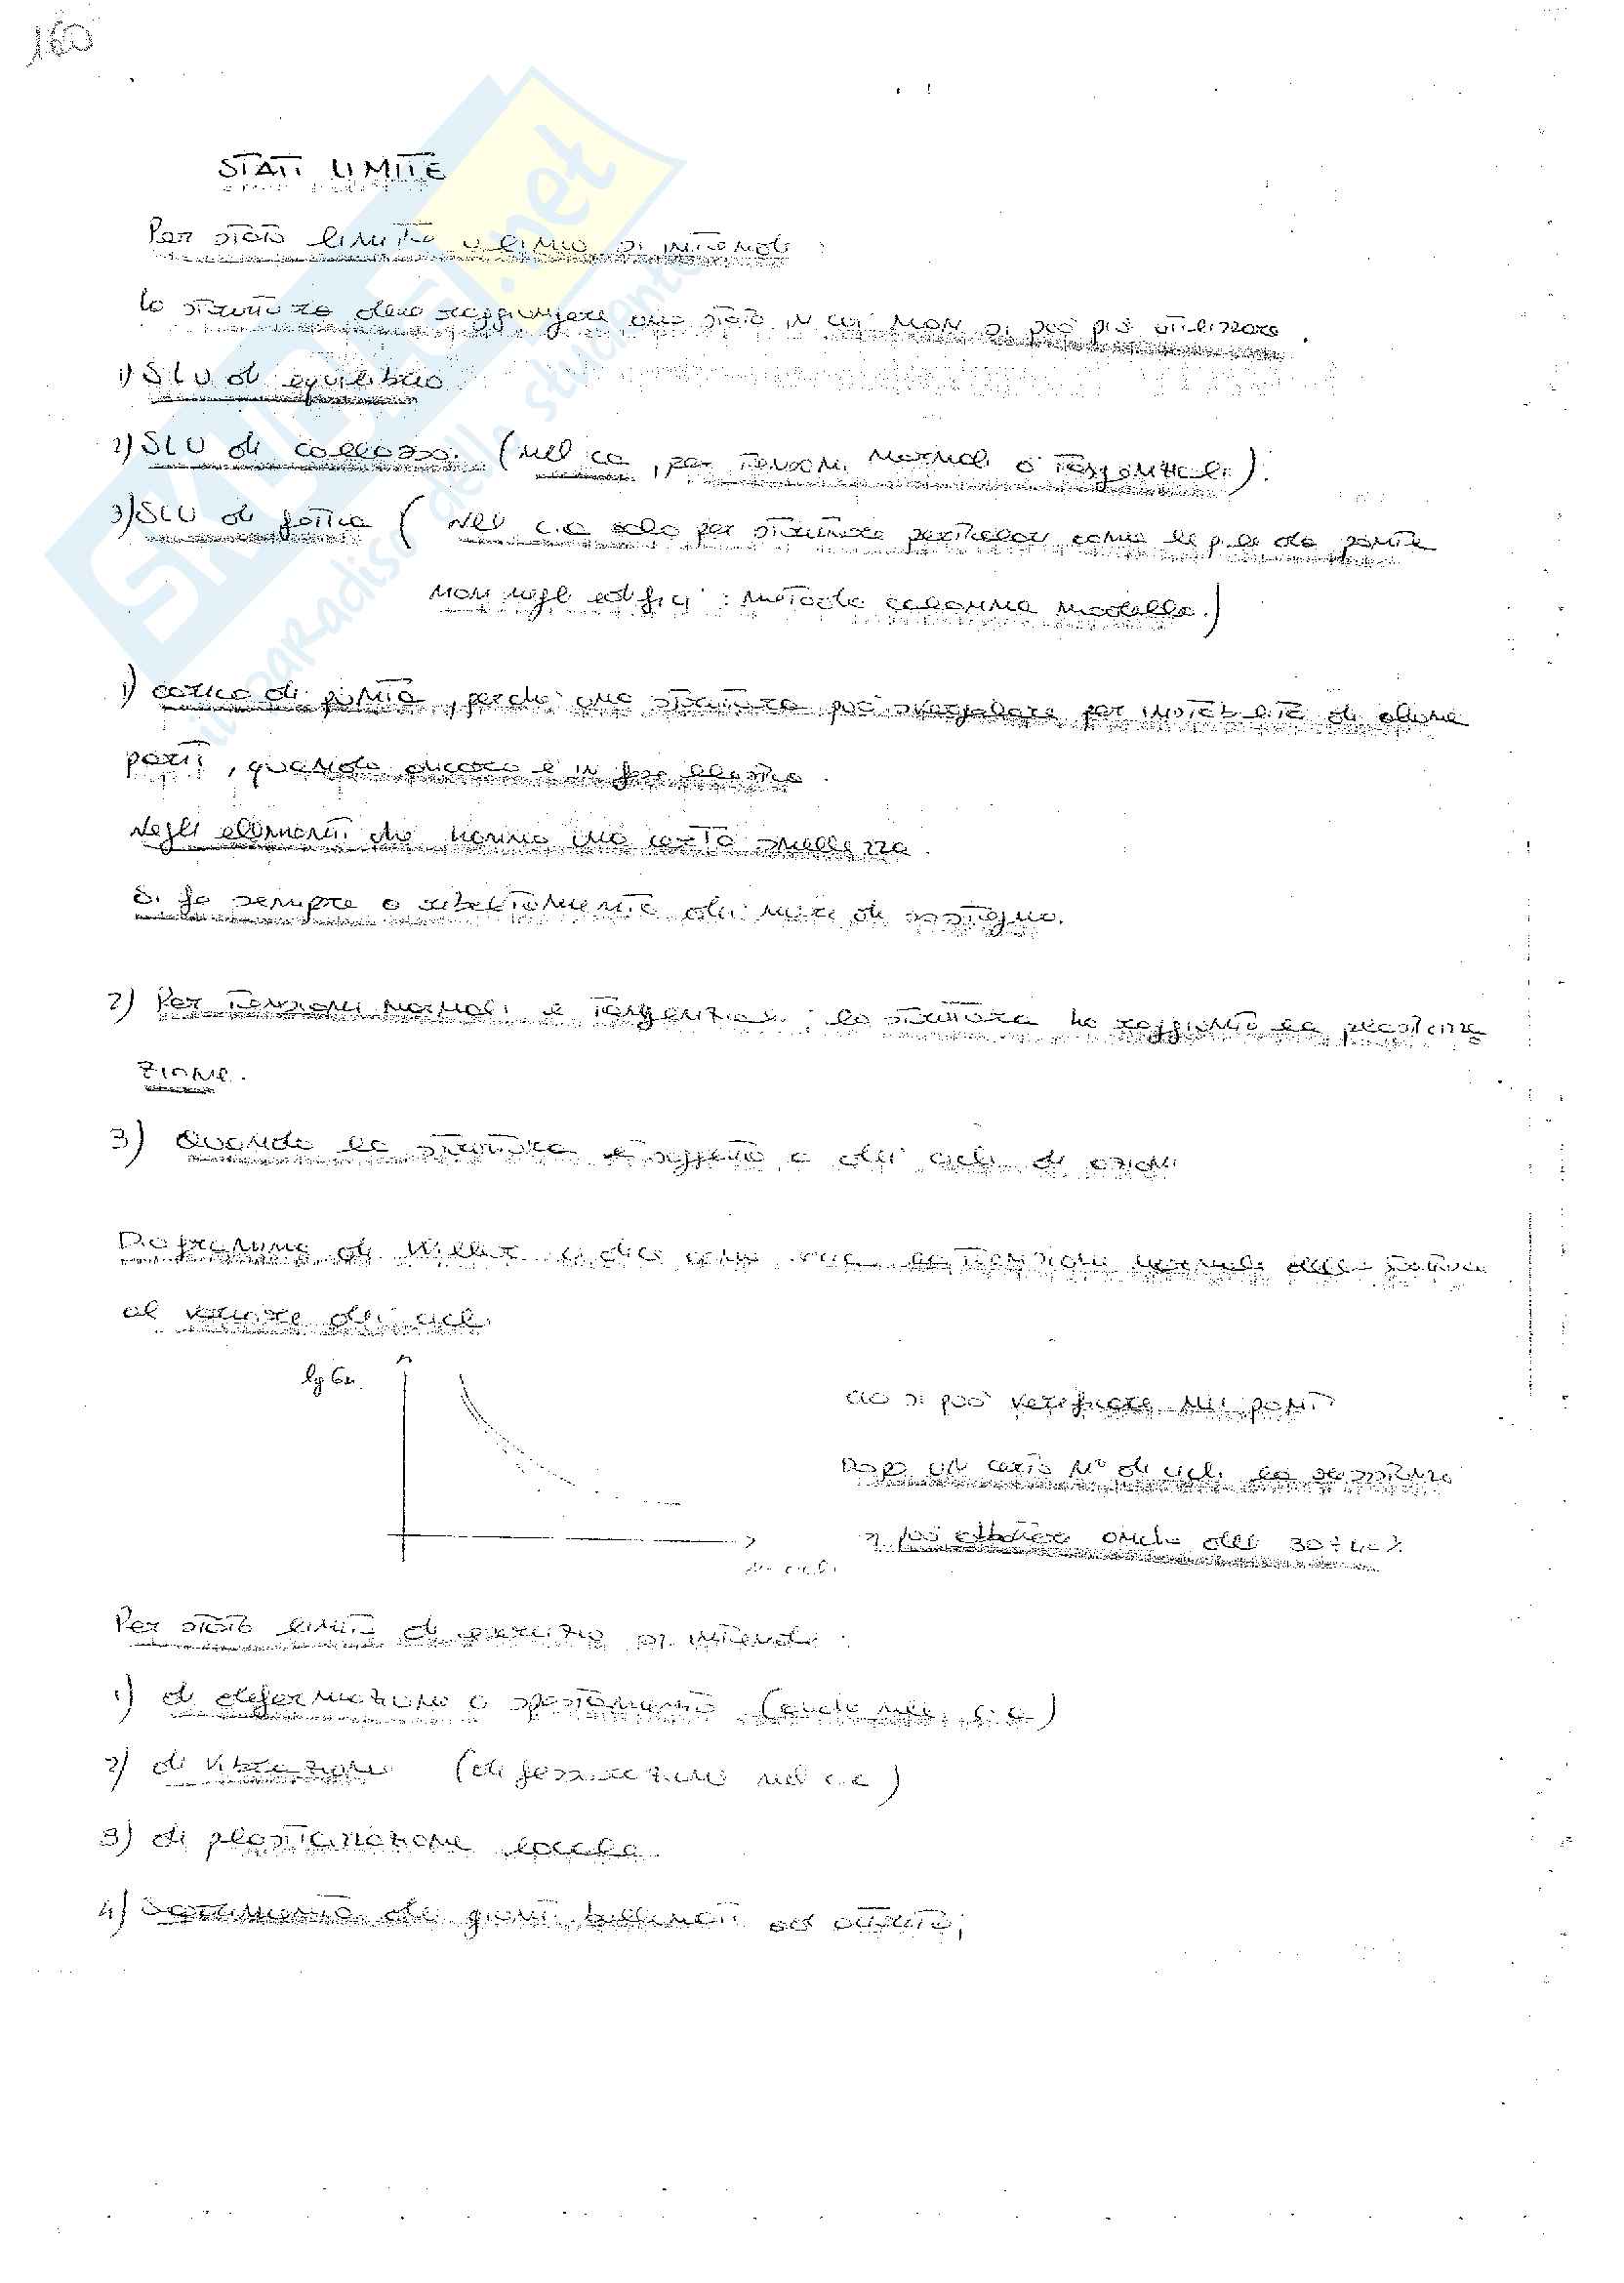 160
STATI LIMITE
Per stato limite ultimo si intende :
la struttura deve raggiungere uno stato in cui non si può più utilizzare.
1) SLU di equilibrio
2) SLU di collasso. (nel ca, per tensioni normali o tangenziali).
3) SLU di fatica ( nel c.a solo per strutture particolari come le pile da ponte
non negli edifici : metodo colonna modello.)
1) carico di punta, perché una struttura può svergolare per instabilità di alcune
parti, quando ancora è in fase elastica.
Negli elementi che hanno una certa snellezza.
Si fa sempre a ribaltamento dei muri di sostegno.
2) Per tensioni normali e tangenziali: la struttura ha raggiunto la plasticizza
zione.
3) Quando la struttura è soggetta a dei cicli di azioni
Diagramma di ci dice come la tensione normale della
al variare dei cicli
lg σn.
ciò si può verificare nei ponti
Dopo un certo n° di cicli la resistenza
si può abbattere anche del 30÷40%
n° cicli
Per stato limite di esercizio si intende :
1) di deformazione o spostamento (anche nel c.a)
2) di vibrazione (di fessurazione nel c.a)
3) di plasticizzazione locale.
4) Scorrimento dei giunti bullonati ad attrito;
SKUOLA.net
il paradiso dello studente